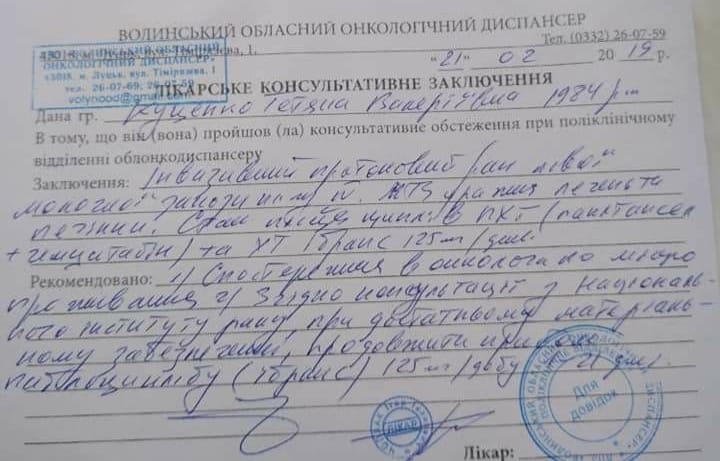 ВОЛИНСЬКИЙ ОБЛАСНИЙ ОНКОЛОГІЧНИЙ ДИСПАНСЕР
43018, м. Луцьк, вул. Тімірязєва, 1. Тел. (0332) 26-07-59
ВОЛИНСЬКИЙ ОБЛАСНИЙ
ОНКОЛОГІЧНИЙ ДИСПАНСЕР»
43018, м. Луцьк, вул. Тімірязєва, 1
тел. 26-07-69; 26-07-59
volynood@gmail.com
"21" 02 2019 р.
ЛІКАРСЬКЕ КОНСУЛЬТАТИВНЕ ЗАКЛЮЧЕННЯ
Дана гр. Куценко Тетяна Валеріївна 1984 р.н.
В тому, що він (вона) пройшов (ла) консультативне обстеження при поліклінічному
відділенні облонкодиспансеру
Заключення: Інвазивний протоковий рак лівої
молочної залози
печінки. Стан після циклів ПХТ (паклітаксел
+ гемцитабін) та ХТ Ібранс 125 мг/день.
Рекомендовано: 1) Спостереження в онколога по місцю
проживання 2) Згідно консультації з Національ-
ного інституту раку, при достатньому матеріаль-
ному забезпеченні, продовжити прийом
палбоциклібу (Ібранс) 125 мг/добу 21 день.
ЛІКАР
Для
довідок
Лікар: